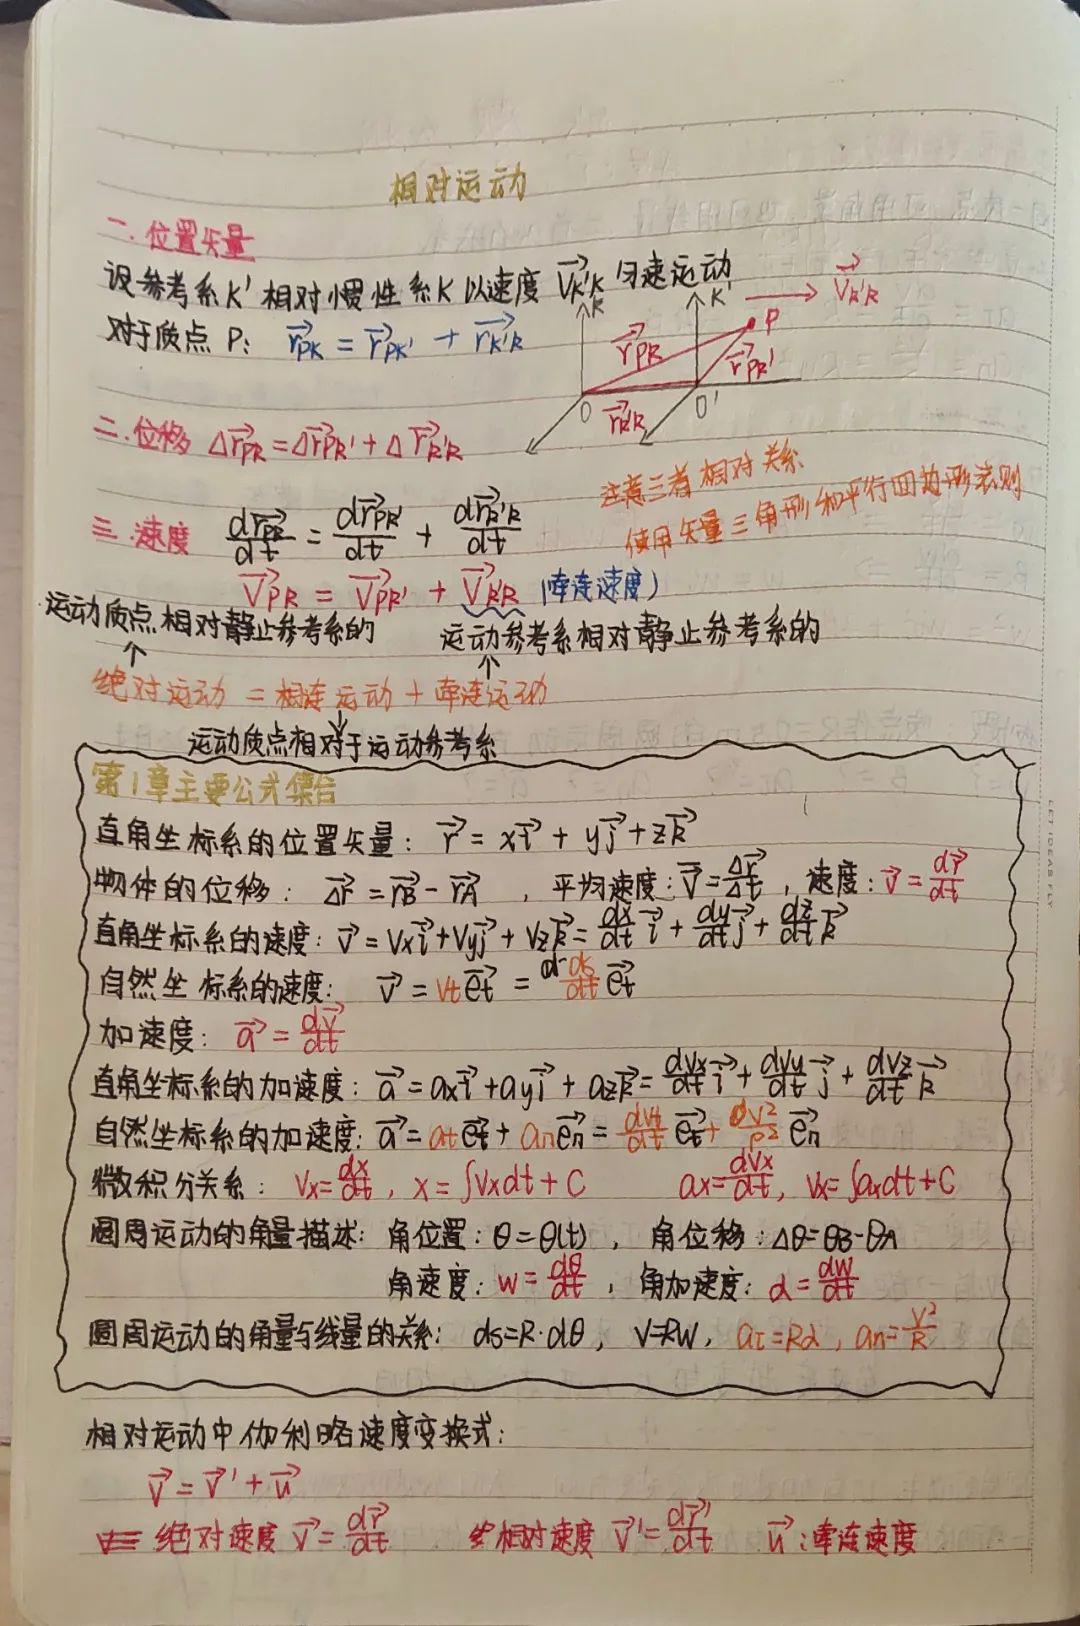 相对运动
一.位置矢量
设参考系K'相对惯性系K以速度 \vec{V_{K'K}} 匀速运动
对于质点P: \vec{r_{PK}} = \vec{r_{PK'}} + \vec{r_{K'K}}
K K' \vec{V_{K'K}}
P
\vec{r_{PK}} \vec{r_{PK'}}
O \vec{r_{K'K}} O'
二.位移 Δ\vec{r_{PK}} = Δ\vec{r_{PK'}} + Δ\vec{r_{K'K}}
注意三者相对关系
使用矢量三角形和平行四边形法则
三.速度 \frac{d\vec{r_{PK}}}{dt} = \frac{d\vec{r_{PK'}}}{dt} + \frac{d\vec{r_{K'K}}}{dt}
\vec{V_{PK}} = \vec{V_{PK'}} + \vec{V_{K'K}} (牵连速度)
运动质点相对静止参考系的 运动参考系相对静止参考系的
↑ ↑
绝对运动 = 相连运动 + 牵连运动
↓
运动质点相对于运动参考系
第1章主要公式集合
直角坐标系的位置矢量: \vec{r} = x\vec{i} + y\vec{j} + z\vec{k}
物体的位移: \vec{Δr} = \vec{r_B} - \vec{r_A}, 平均速度: \vec{V} = \frac{Δ\vec{r}}{Δt}, 速度: \vec{v} = \frac{d\vec{r}}{dt}
直角坐标系的速度: \vec{v} = Vx\vec{i} + Vy\vec{j} + Vz\vec{k} = \frac{dx}{dt}\vec{i} + \frac{dy}{dt}\vec{j} + \frac{dz}{dt}\vec{k}
自然坐标系的速度: \vec{v} = Vt\vec{et} = \frac{ds}{dt}\vec{et}
加速度: \vec{a} = \frac{d\vec{v}}{dt}
直角坐标系的加速度: \vec{a} = ax\vec{i} + ay\vec{j} + az\vec{k} = \frac{dVx}{dt}\vec{i} + \frac{dVy}{dt}\vec{j} + \frac{dVz}{dt}\vec{k}
自然坐标系的加速度: \vec{a} = at\vec{et} + an\vec{en} = \frac{dVt}{dt}\vec{et} + \frac{V^2}{ρ}\vec{en}
微积分关系: Vx = \frac{dx}{dt}, x = ∫Vxdt + C ax = \frac{dVx}{dt}, Vx = ∫axdt + C
圆周运动的角量描述: 角位置: θ = θ(t), 角位移: Δθ = θB - θA
角速度: w = \frac{dθ}{dt}, 角加速度: α = \frac{dw}{dt}
圆周运动的角量与线量的关系: ds = R·dθ, V = RW, aτ = Rα, an = \frac{V^2}{R}
相对运动中伽利略速度变换式:
\vec{V} = \vec{V}' + \vec{u}
绝对速度 \vec{V} = \frac{d\vec{r}}{dt} 相对速度 \vec{V}' = \frac{d\vec{r}'}{dt} \vec{u}: 牵连速度
LET IDEAS FLY